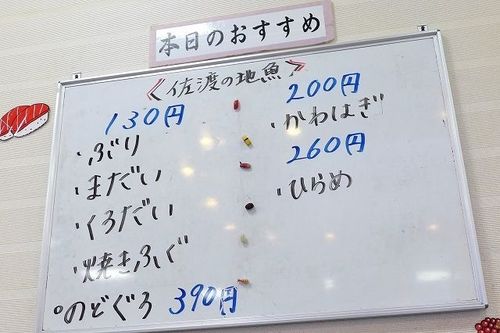 本日のおすすめ
《佐渡の地魚》
130円
・ぶり
・まだい
・くろだい
・焼きふぐ
○のどぐろ 390円
200円
・かわはぎ
260円
・ひらめ